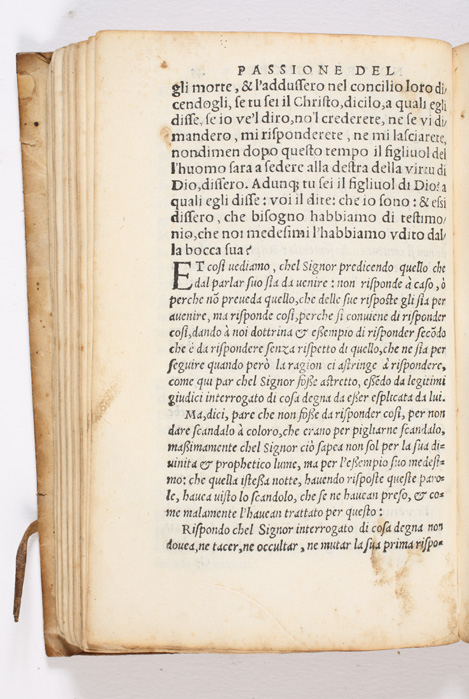 PASSIONE DEL
gli morte, & l'addussero nel concilio loro di/
cendogli, se tu sei il Christo, dicilo, a quali egli
disse, se io ve'l diro, no'l crederete, ne se vi di/
mandero, mi risponderete, ne mi lasciarete,
nondimen dopo questo tempo il figliuol del
l'huomo sara a sedere alla destra della virtu di
Dio, dissero. Adunq; tu sei il figliuol di Dio? a
quali egli disse: voi il dite: che io sono: & essi
dissero, che bisogno habbiamo di testimo/
nio, che noi medesimi l'habbiamo vdito dal/
la bocca sua?
ET cosi uediamo, chel Signor predicendo quello che
dal parlar suo sia da uenire: non risponde à caso, ò
perche nõ preueda quello, che delle sue risposte gli sia per
auenire, ma risponde cosi, perche si conuiene di risponder
cosi, dando à noi dottrina & eßempio di risponder secõdo
che è da rispondere senza rispetto di quello, che ne sia per
seguire quando però la ragion ci astringe à rispondere,
come qui par chel Signor foße astretto, eßẽdo da legitimi
giudici interrogato di cosa degna da eßer esplicata da lui.
Ma, dici, pare che non foße da risponder cosi, per non
dare scandalo à coloro, che erano per pigliarne scandalo,
maßimamente chel Signor ciò sapea non sol per la sua di=
uinita & prophetico lume, ma per l'eßempio suo medesi=
mo: che quella isteßa notte, hauendo risposte queste paro=
le, hauea uisto lo scandolo, che se ne hauean preso, & co=
me malamente l'hauean trattato per questo:
Rispondo chel Signor interrogato di cosa degna non
douea, ne tacer, ne occultar, ne mutar la sua prima rispo=